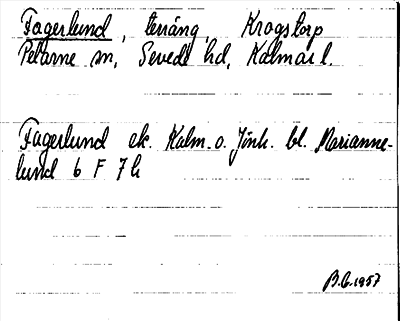 Fagerlund, terräng, Krogstorp
Pelarne sn, Sevede hd, Kalmar l.
Fagerlund ek. Kalm. o. Jönk. bl. Marianne-
lund 6 F 7 h
B.E. 1957